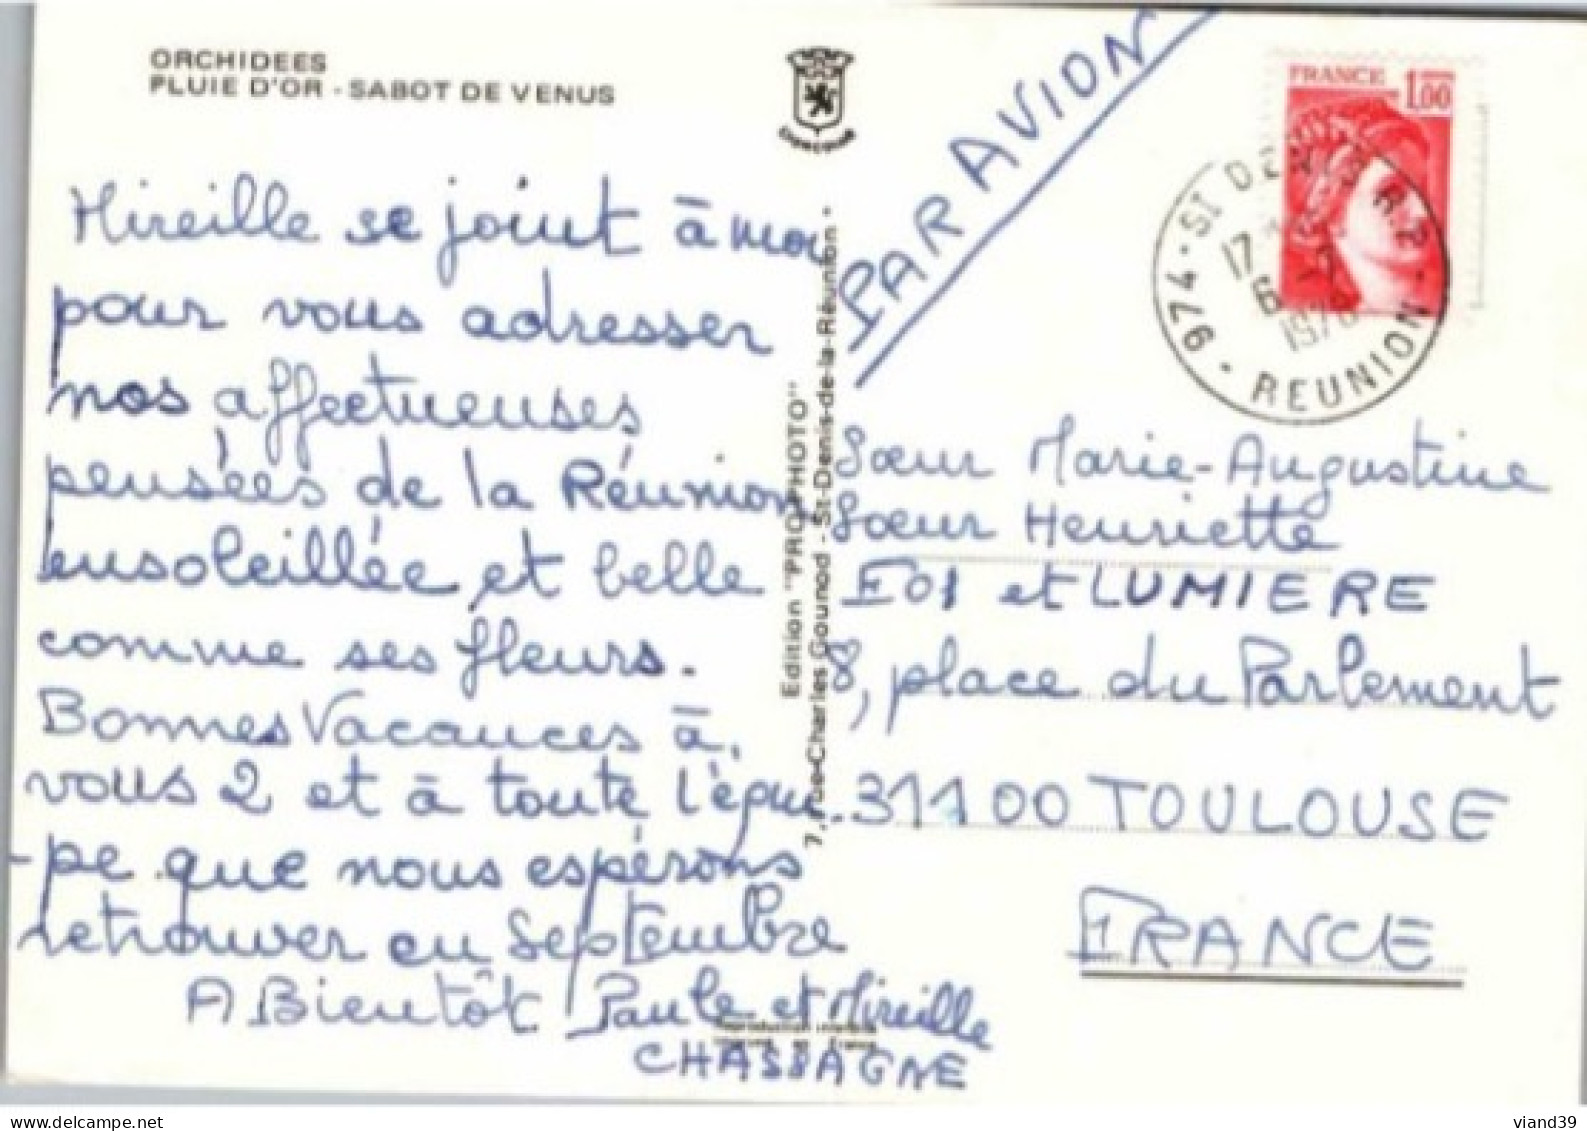 ORCHIDEES
PLUIE D'OR - SABOT DE VENUS
Mireille se joint à moi
pour vous adresser
nos affectueuses
pensées de la Réunion
ensoleillée et belle
comme ses fleurs.
Bonnes Vacances à
vous 2 et à toute l'équi
-pe que nous espérons
retrouver en Septembre
A Bientôt Paule et Mireille
CHASSAGNE
Edition "PRO PHOTO"
7, rue Charles Gounod - St-Denis-de-la-Réunion
PAR AVION
FRANCE 1,00
974 - ST DENIS R.P. - REUNION
17
1978
Sœur Marie-Augustine
Sœur Henriette
FOI et LUMIERE
8, place du Parlement
31100 TOULOUSE
FRANCE
viand39